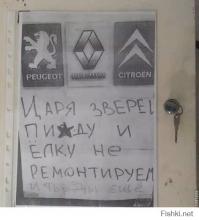 PEUGEOT
RENAULT
CITROËN
ЦАРЯ ЗВЕРЕЙ
ПИ★ДУ И
ЁЛКУ НЕ
РЕМОНТИРУЕМ
Fishki.net